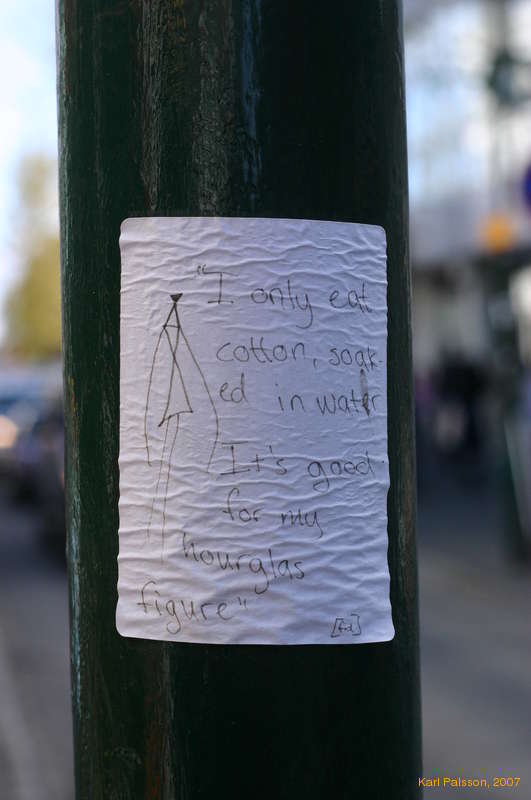 "I only eat
cotton, soak-
ed in water
It's good
for my
hourglas
figure"
Karl Palsson, 2007